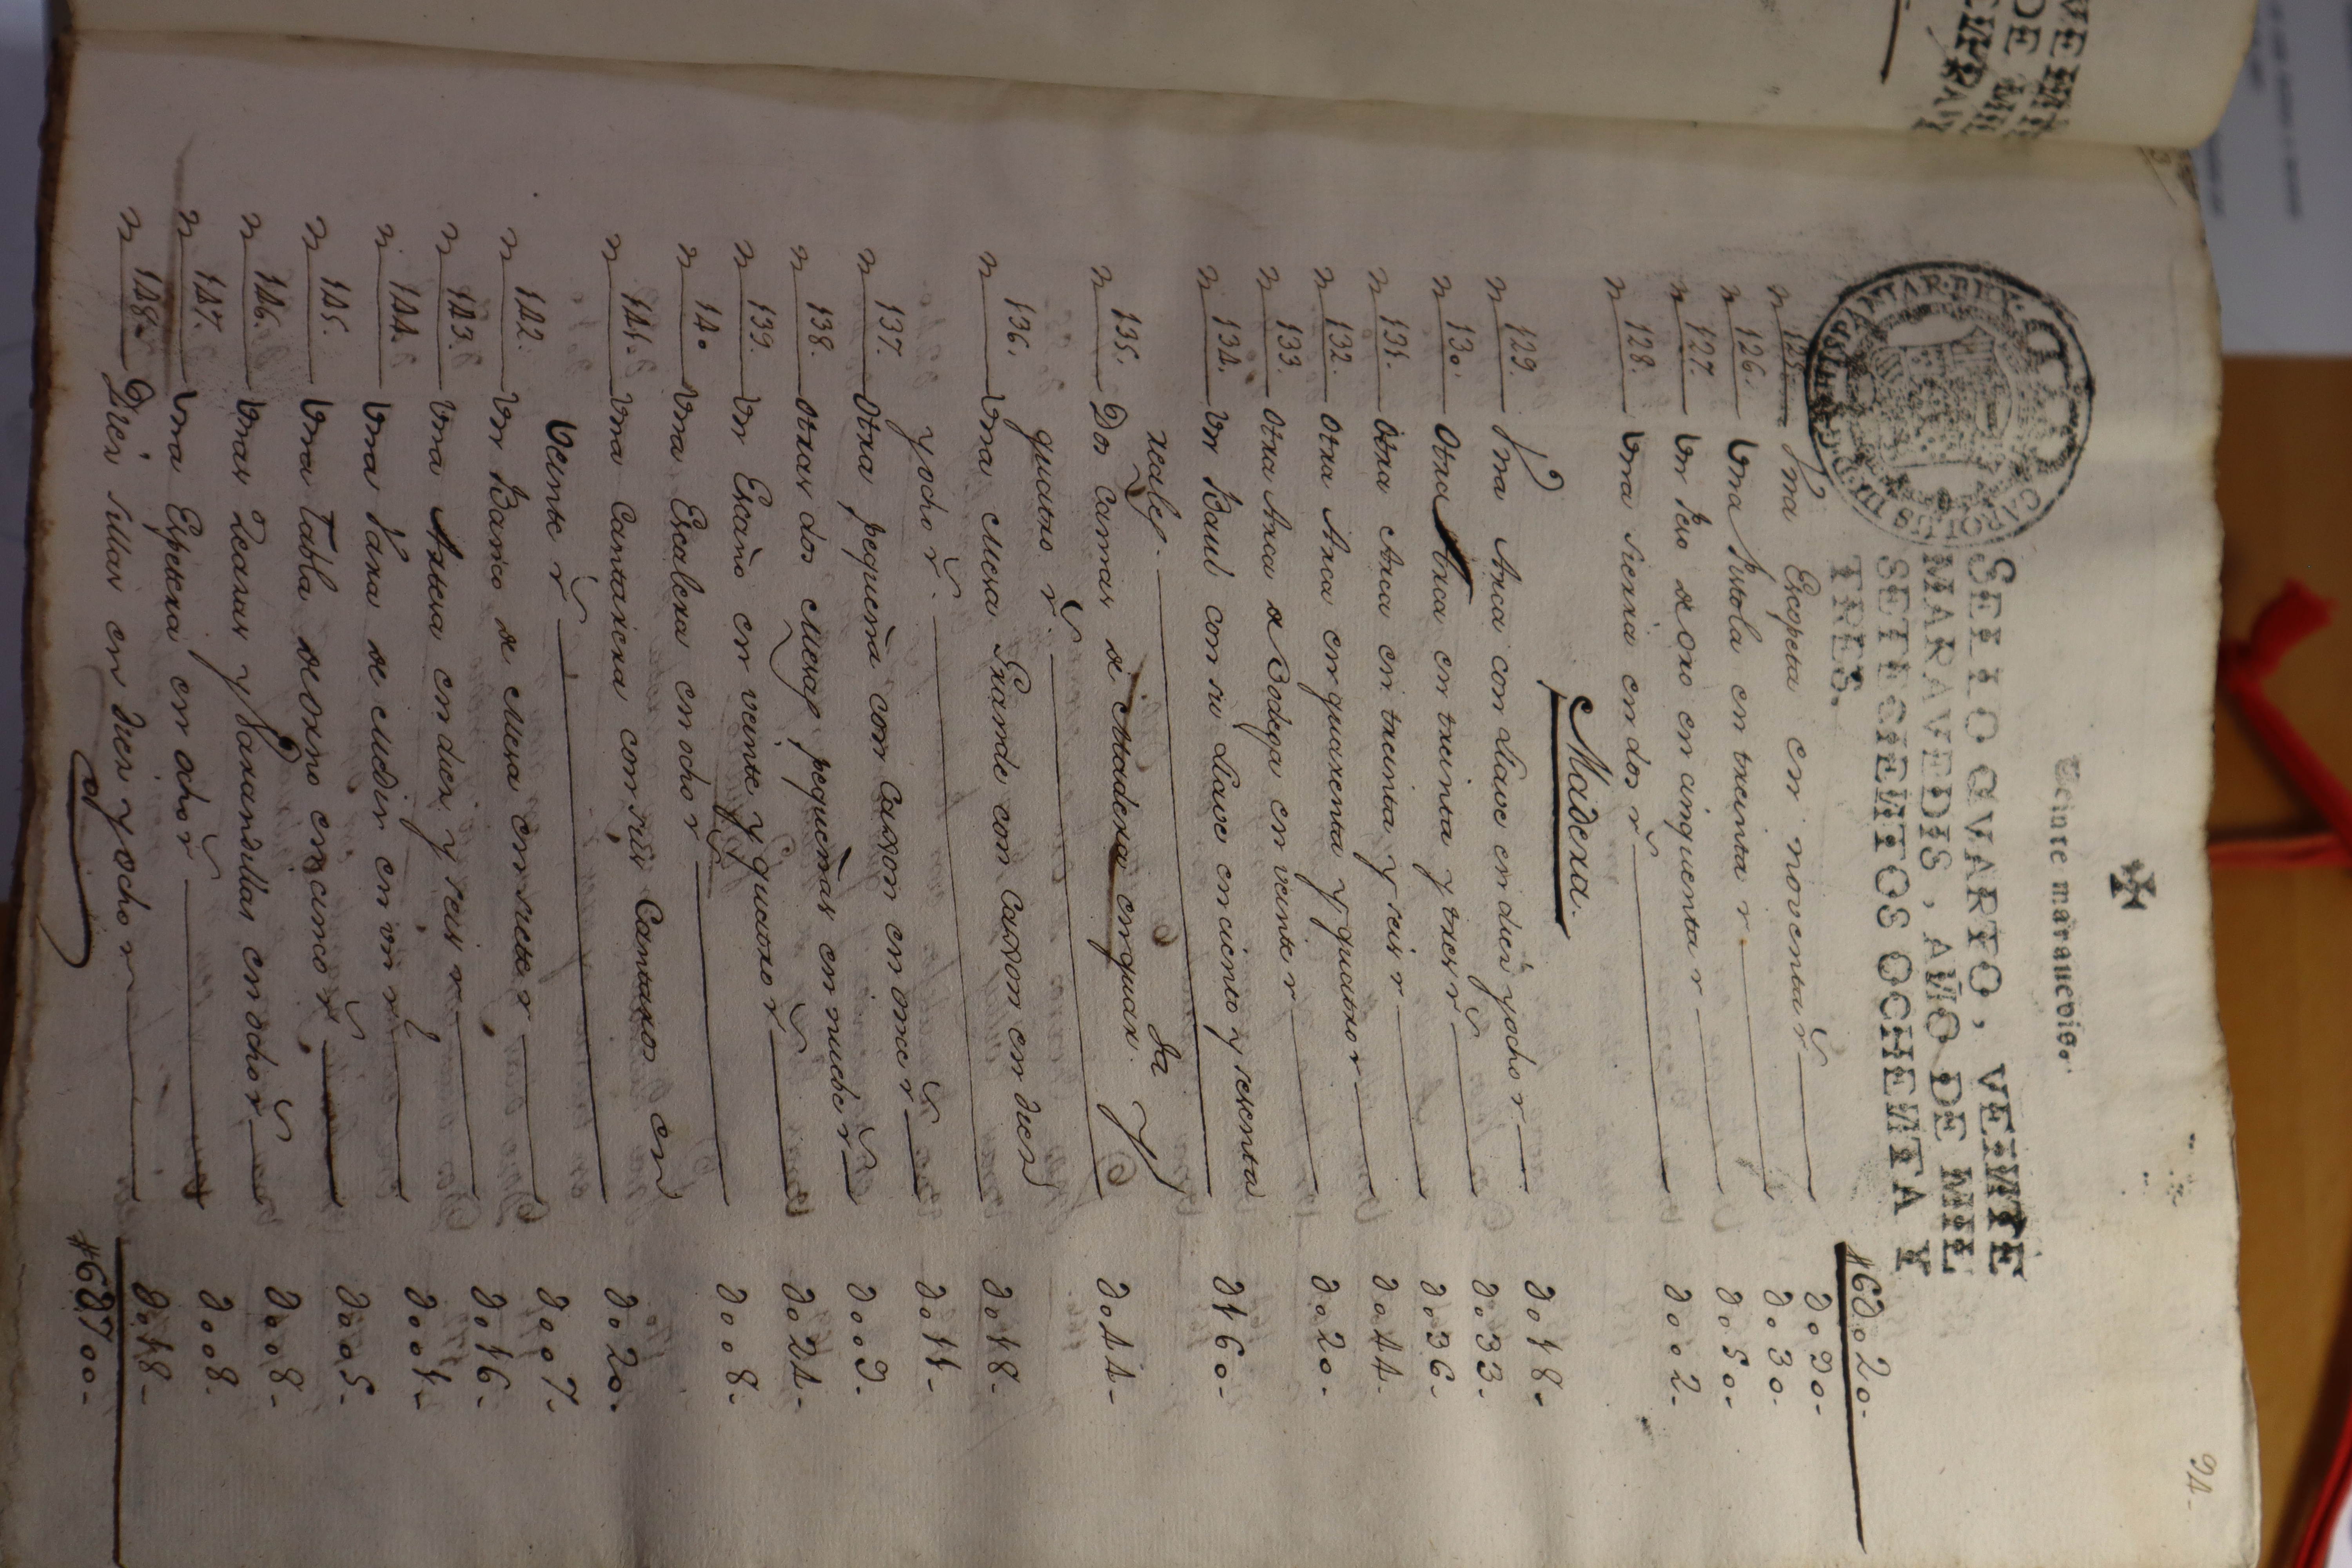 94-
Veinte marauedis.
SELLO QVARTO, VEINTE
MARAVEDIS, AÑO DE MIL
SETECIENTOS OCHENTA Y
TRES.
CAROLUS III D.G. HISPANIAR. REX
#6ꝺ020-
n 125. Vna Escopeta en noventa r.s ꝺ090-
n 126. Vna Pistola en treinta r ꝺ030-
n 127. Vn Peso de oro en cinquenta r ꝺ050-
n 128. Vna sierra en dos r.s ꝺ002-
Madera.
n 129. Vna Arca con llave en diez y ocho r ꝺ018-
n 130. Otra Arca en treinta y tres r.s ꝺ033-
n 131. Otra Arca en treinta y seis r ꝺ036-
n 132. Otra Arca en quarenta y quatro r ꝺ044-
n 133. Otra Arca de Bodega en veinte r ꝺ020-
n 134. Vn Baul con su llave en ciento y sesenta
reales ꝺ160-
n 135. Dos Camas de Madera en quar.ta y
quatro r.s ꝺ044-
n 136. Vna Mesa Grande con Caxon en diez
y ocho r.s ꝺ018-
n 137. Otra pequeña con Caxon en once r.s ꝺ011-
n 138. Otras dos Mesas pequeñas en nuebe r.s ꝺ009-
n 139. Vn Escaño en veinte y quatro r.s ꝺ024-
n 140 Vna Escalera en ocho r.s ꝺ008-
n 141. Vna Cantarera con sus Cantaros en
veinte r.s ꝺ020.
n 142. Vn Banco de Mesa en siete r ꝺ007-
n 143. Vna Artesa en diez y seis r ꝺ016-
n 144. Vna Vara de Medir en vn r.l ꝺ001-
n 145. Vna Tabla de Orno en cinco r.s ꝺ005-
n 146. Vnas Zearas y Varandillas en ocho r.s ꝺ008-
n 147. Vna Espetera en ocho r.s ꝺ008.
n 148. Diez sillas en diez y ocho r ꝺ018-
#6ꝺ700-